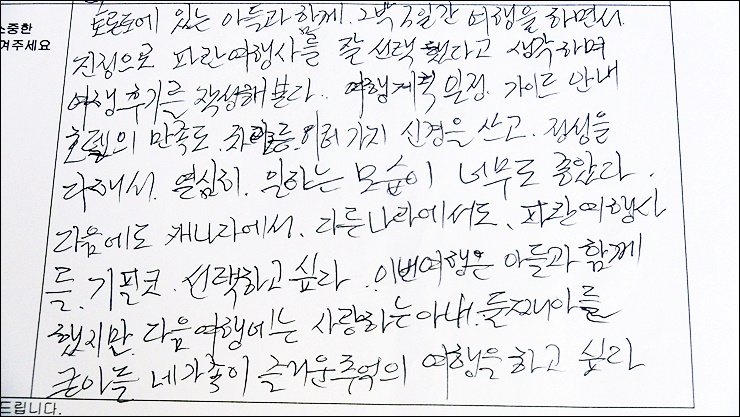 소중한
겨주세요
토론토에 있는 아들과 함께. 2박3일간 여행을 하면서
진정으로 파란여행사를 잘 선택 했다고 생각하며
여행후기를 작성해본다. 여행계획 일정. 가이드 안내
호텔의 만족도. 차량등. 여러가지 신경을 쓰고. 정성을
다해서. 열심히. 일하는 모습이 너무도 좋았다.
다음에도 캐나라에서. 다른나라에서도. 파란여행사
를. 기필코. 선택하고 싶라. 이번여행은 아들과 함께
했지만. 다음여행에는 사랑하는아내. 둘째아들
큰아들 네가족이 즐거운추억의 여행을 하고 싶라
드립니다.